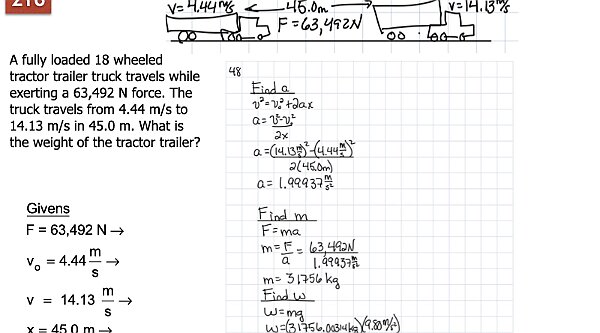 210
v=4.44 m/s ← 45.0m → v=14.13 m/s
F=63,492N
A fully loaded 18 wheeled
tractor trailer truck travels while
exerting a 63,492 N force. The
truck travels from 4.44 m/s to
14.13 m/s in 45.0 m. What is
the weight of the tractor trailer?
Givens
F = 63,492 N →
vₒ = 4.44 m/s →
v = 14.13 m/s →
x = 45.0 m →
48
Find a
v²=vₒ²+2ax
a= v²-vₒ²
2x
a=(14.13 m/s)²-(4.44 m/s)²
2(45.0m)
a= 1.99937 m/s²
Find m
F=ma
m= F/a = 63,492N
1.99937 m/s²
m= 31756 kg
Find w
w=mg
w=(31756.00314kg)(9.80 m/s²)